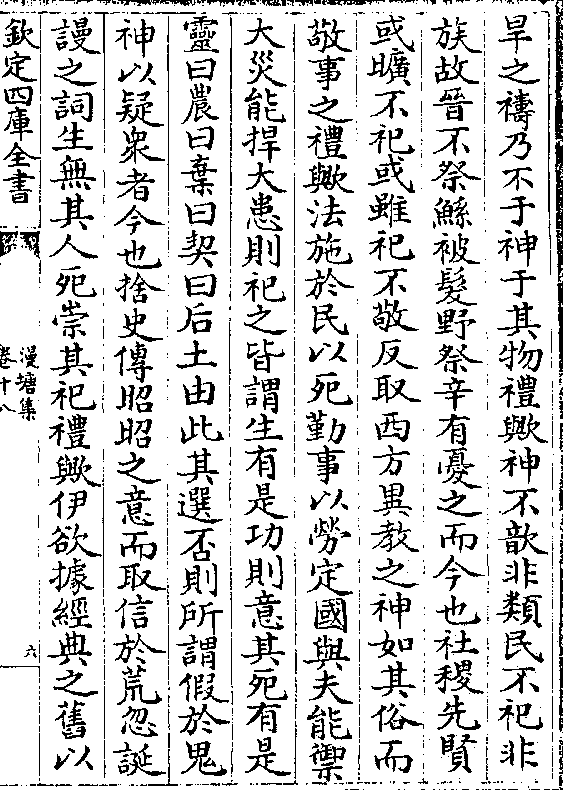 旱之禱乃不于神于其物禮歟神不歆非類民不祀非
族故晉不祭鯀被髮野祭辛有憂之而今也社稷先賢
或曠不祀或雖祀不敬反取西方異教之神如其俗而
敬事之禮歟法施於民以死勤事以勞定國與夫能禦
大災能捍大患則祀之皆謂生有是功則意其死有是
靈曰農曰棄曰契曰后土由此其選否則所謂假於鬼
神以疑衆者今也捨史傳昭昭之意而取信於荒忽誕
謾之詞生無其人死崇其祀禮歟伊欲據經典之舊以
欽定四庫全書
漫塘集
卷十八
六